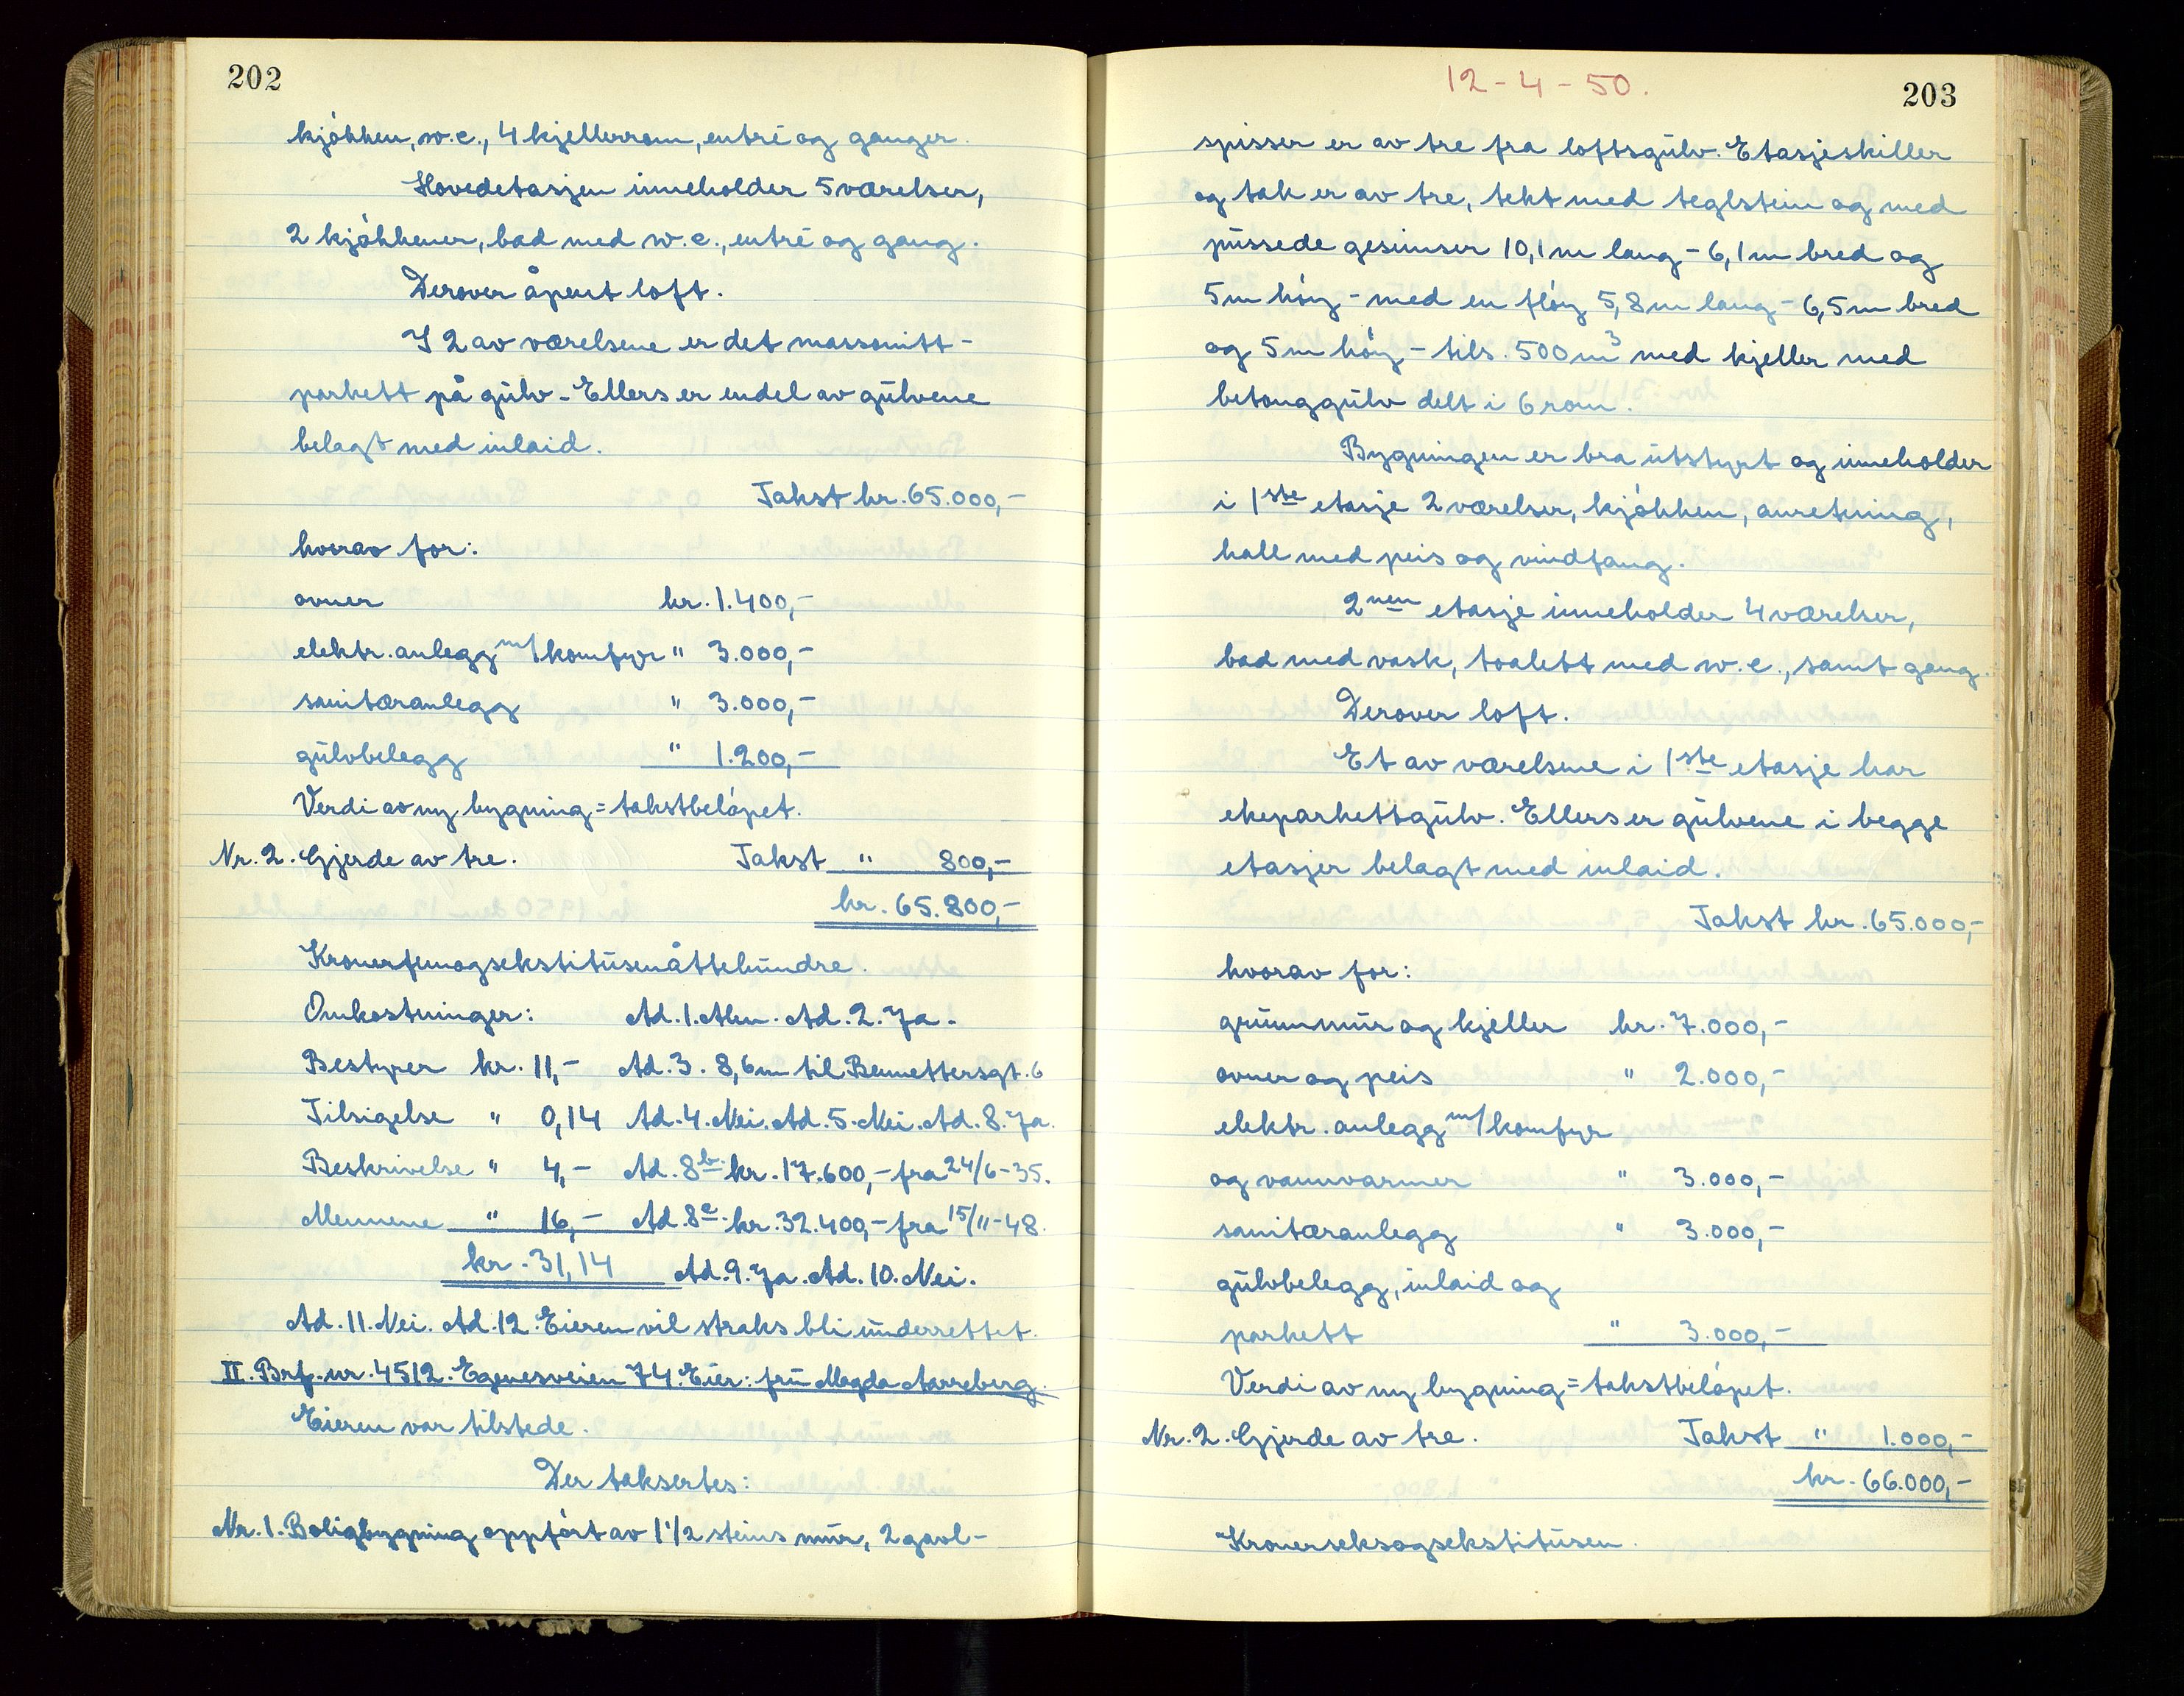 202
kjøkken, w.c., 4 kjellerrom, entré og ganger.
Hovedetasjen inneholder 5 værelser,
2 kjøkkener, bad med w.c., entré og gang.
Derover åpent loft.
I 2 av værelsene er det massonitt-
parkett på gulv - Ellers er endel av gulvene
belagt med inlaid.
Takst kr. 65.000,-
hvorav for:
ovner kr. 1.400,-
elektr. anlegg m/komfyr " 3.000,-
sanitæranlegg " 3.000,-
gulvbelegg " 1.200,-
Verdi av ny bygning = takstbeløpet.
Nr. 2. Gjerde av tre. Takst " 800,-
kr. 65.800,-
Kronerfemogsekstitusenåttehundre.
Omkostninger: Ad. 1. Alm. Ad. 2. Ja.
Bestyrer kr. 11,- Ad. 3. 8,6 m til Bennettersgt. 6
Tilsigelse " 0,14 Ad. 4. Nei. Ad. 5. Nei. Ad. 8. Ja.
Beskrivelse " 4,- Ad. 8b. kr. 17.600,- fra 24/6-35.
Mennene " 16,- Ad. 8c. kr. 32.400,- fra 15/11-48.
kr. 31,14 Ad. 9. Ja. Ad. 10. Nei.
Ad. 11. Nei. Ad. 12. Eieren vil straks bli underrettet.
II. Brf. nr. 4512. Egenesveien 74. Eier: fru Magda Aarreberg.
Eieren var tilstede.
Der taksertes:
Nr. 1. Boligbygning oppført av 1 1/2 steins mur, 2 gavl-
12-4-50.
203
spisser er av tre fra loftsgulv. Etasjeskiller
og tak er av tre, tekt med teglstein og med
pussede gesimser 10,1 m lang - 6,1 m bred og
5 m høy - med en fløy 5,8 m lang - 6,5 m bred
og 5 m høy - tils. 500 m3 med kjeller med
betonggulv delt i 6 rom.
Bygningen er bra utstyrt og inneholder
i 1ste etasje 2 værelser, kjøkken, anretning,
hall med peis og vindfang.
2nen etasje inneholder 4 værelser,
bad med vask, toalett med w.c., samt gang.
Derover loft.
Et av værelsene i 1ste etasje har
ekeparkettgulv. Ellers er gulvene i begge
etasjer belagt med inlaid.
Takst kr. 65.000,-
hvorav for:
grunnmur og kjeller kr. 7.000,-
ovner og peis " 2.000,-
elektr. anlegg m/komfyr
og vannvarmer " 3.000,-
sanitæranlegg " 3.000,-
gulvbelegg, inlaid og
parkett " 3.000,-
Verdi av ny bygning = takstbeløpet.
Nr. 2. Gjerde av tre. Takst " 1.000,-
kr. 66.000,-
Kronerseksogsekstitusen.